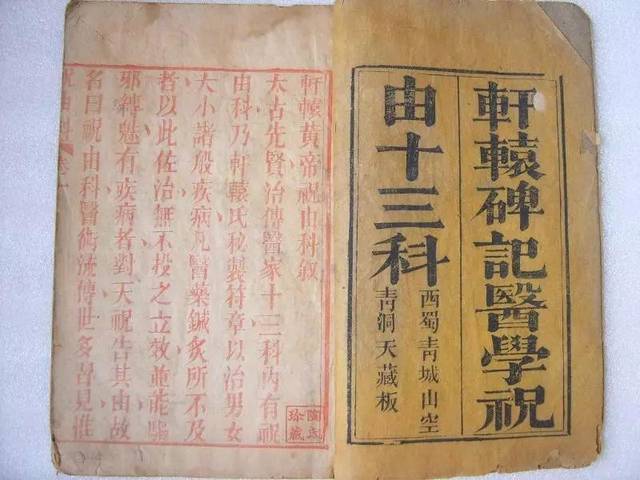 軒轅碑記醫學祝
由十三科
西蜀青城山空
青洞天藏板
軒轅黃帝祝由科敘
太古先賢治傳醫家十三科內有祝
由科乃軒轅氏秘製符章以治男女
大小諸般疾病凡醫藥鍼炙所不及
者以此佐治無不投之立效並能驅
邪縛魅有疾病者對天祝告其由故
名曰祝由科醫術流傳世多習見惟
珍藏